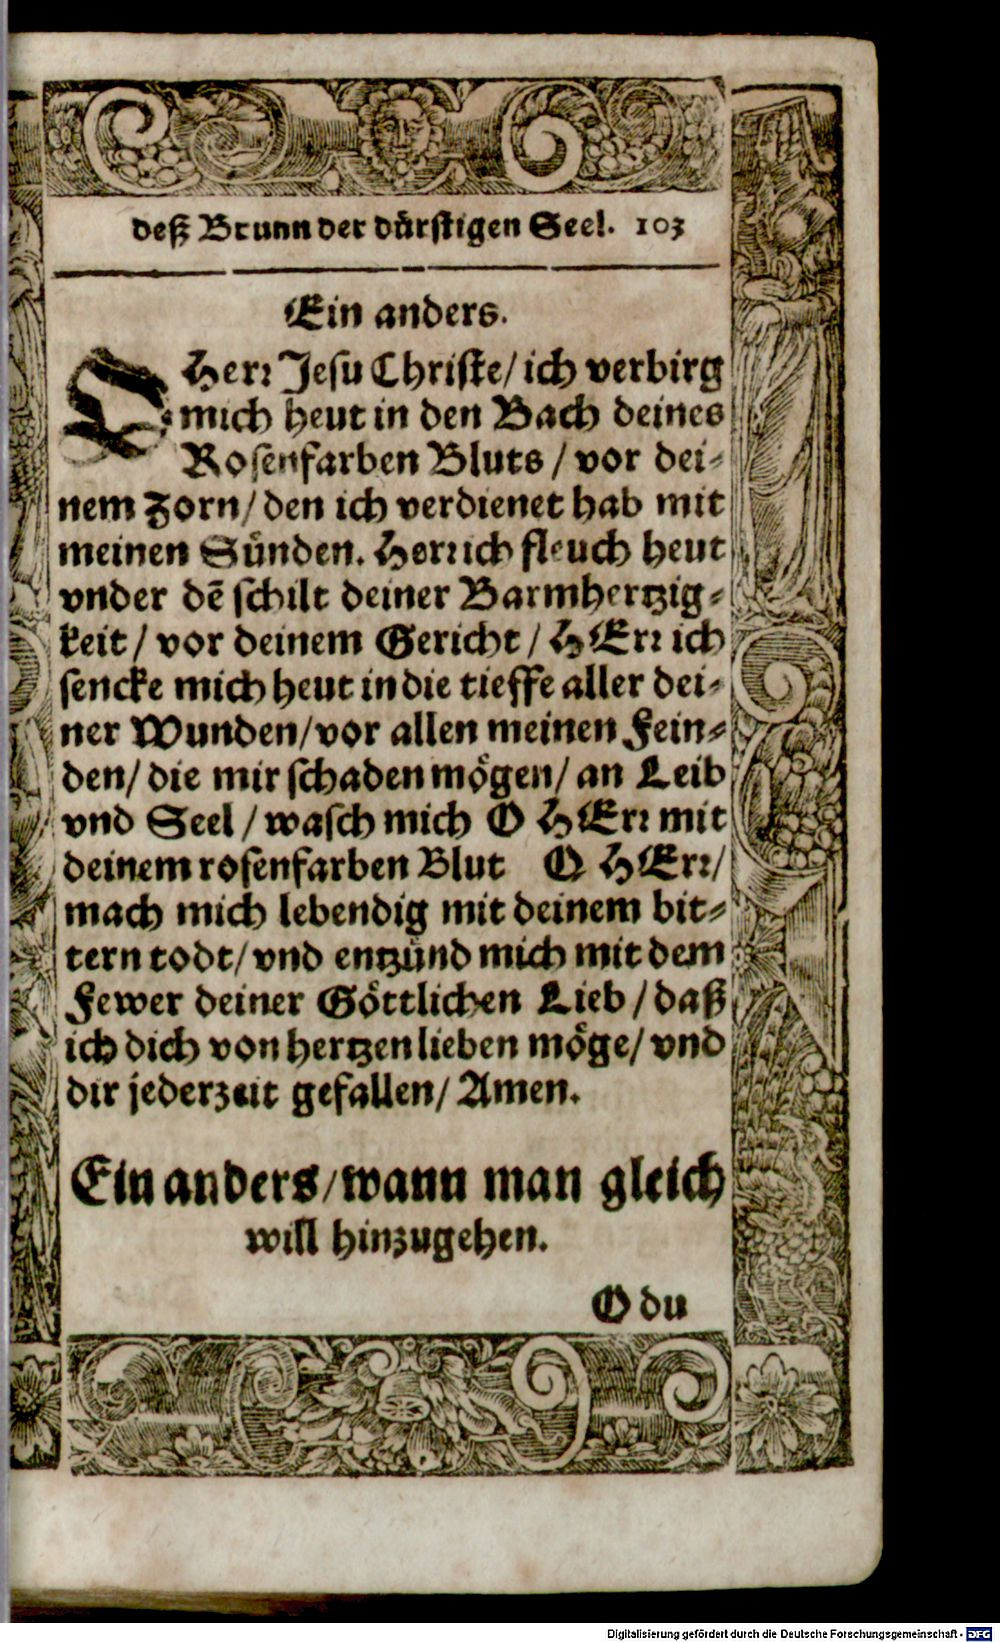 deß Brunn der dürstigen Seel. 103
Ein anders.
O Herr Jesu Christe/ ich verbirg
mich heut in den Bach deines
Rosenfarben Bluts / vor dei-
nem Zorn/ den ich verdienet hab mit
meinen Sünden. Herr ich fleuch heut
vnder dē schilt deiner Barmhertzig-
keit / vor deinem Gericht / HErr ich
sencke mich heut in die tieffe aller dei-
ner Wunden/ vor allen meinen Fein-
den/ die mir schaden mögen/ an Leib
vnd Seel / wasch mich O HErr mit
deinem rosenfarben Blut O HErr/
mach mich lebendig mit deinem bit-
tern todt/ vnd entzünd mich mit dem
Fewer deiner Göttlichen Lieb / daß
ich dich von hertzen lieben möge/ vnd
dir jederzeit gefallen/ Amen.
Ein anders/ wann man gleich
will hinzugehen.
O du
Digitalisierung gefördert durch die Deutsche Forschungsgemeinschaft - DFG